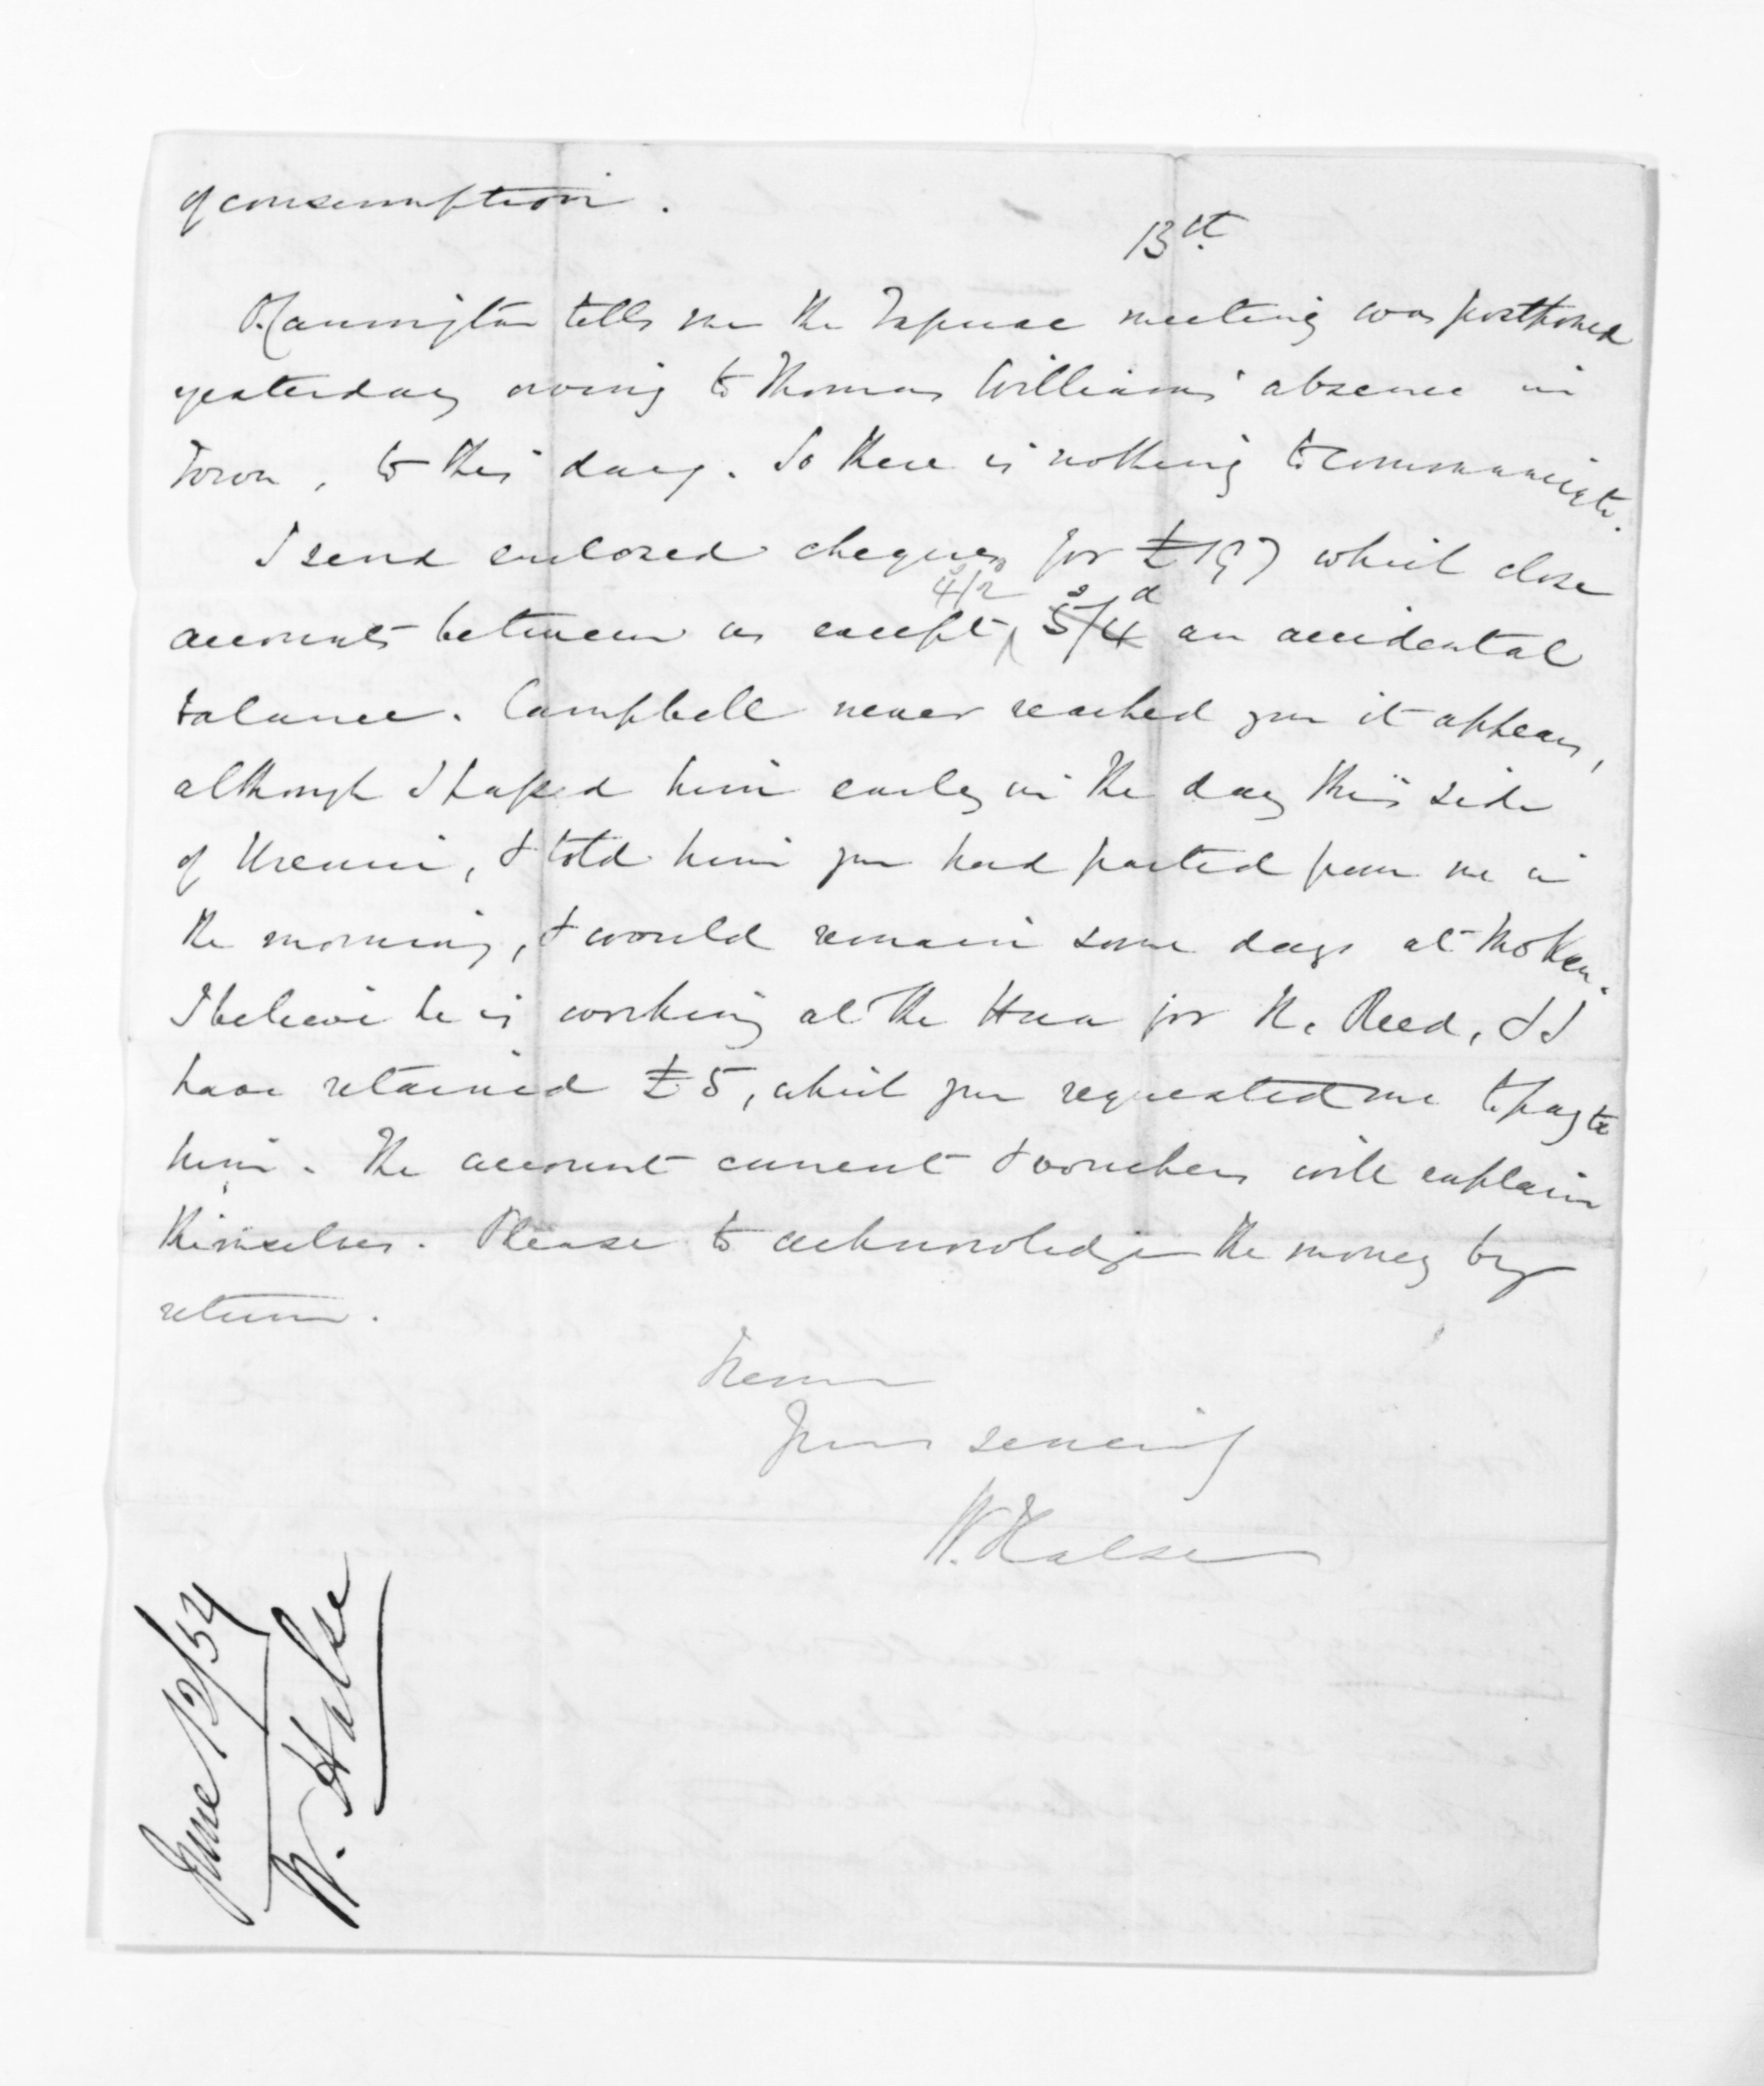 of consumption.
13th
Flannington tells me the Tapuae meeting was postponed
yesterday owing to Thomas Williams' absence in
Town, to this day. So there is nothing to communicate.
I send enclosed cheques for £197 which close
accounts between us except 4s/2d 5s/4d an accidental
balance. Campbell never reached you it appears,
although I passed him early in the day this side
of Urenui, & told him you had parted from me in
the morning, & would remain some days at Mokau.
I believe he is working at the Hua for N. Reed, & I
have retained £5, which you requested me to pay to
him. The account current & vouchers will explain
themselves. Please to acknowledge the money by
return.
Yours sincerely
W. Halse
June 13/54
W. Halse